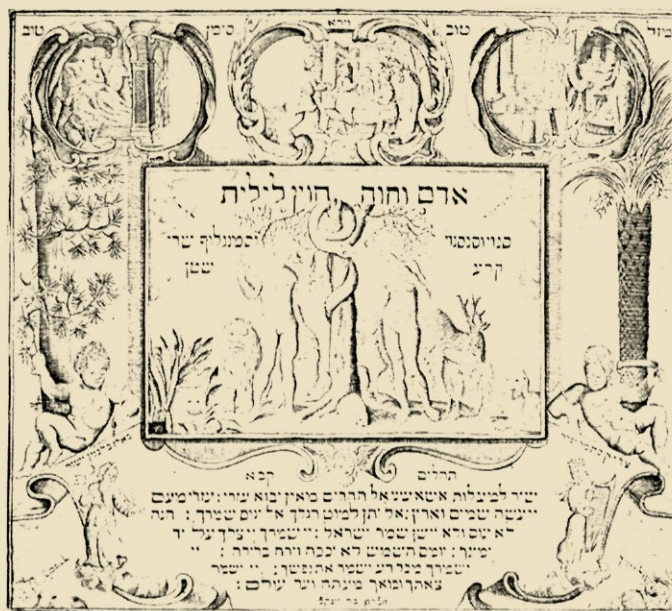 טוב
סימן
טוב
אדם וחוה חוץ לילית
סנוי וסנסנוי וסמנגלוף שרי
קרע שטן
תהלים קכא
שיר למעלות אשא עיני אל ההרים מאין יבוא עזרי : עזרי מעם
יי עשה שמים וארץ : אל יתן למוט רגלך אל ינום שמרך : הנה
לא ינום ולא יישן שמר ישראל : יי שמרך יי צלך על יד
ימינך : יומם השמש לא יככה וירח בלילה : יי
ישמרך מכל רע ישמר את נפשך : יי ישמר
צאתך ובואך מעתה ועד עולם :